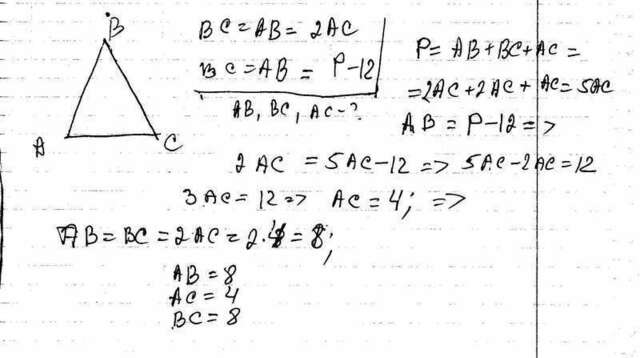 B
A
C
BC = AB = 2AC
BC = AB = P-12
AB, BC, AC - ?
P = AB + BC + AC =
= 2AC + 2AC + AC = 5AC
AB = P - 12 =>
2AC = 5AC - 12 => 5AC - 2AC = 12
3AC = 12 => AC = 4; =>
AB = BC = 2AC = 2·4 = 8;
AB = 8
AC = 4
BC = 8